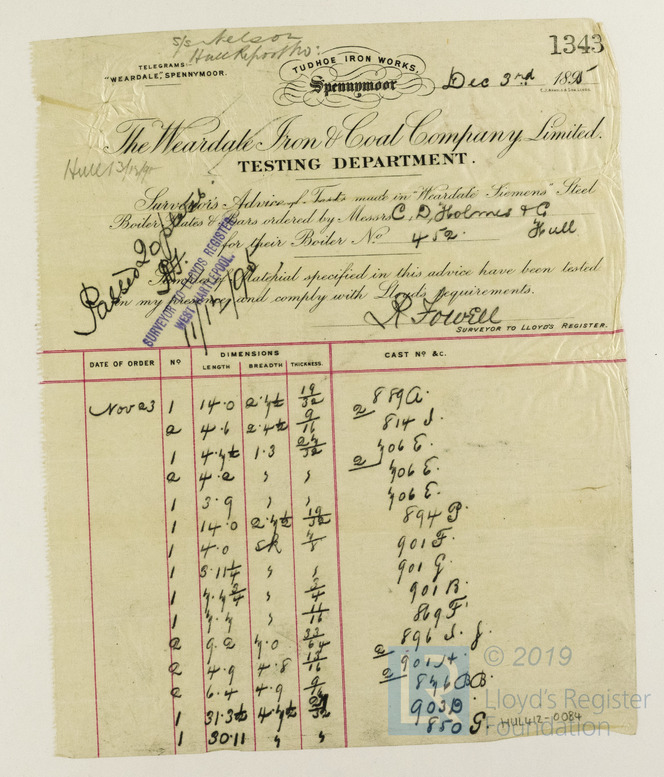 S/S Nelson
Hull Report No:
1343
TELEGRAMS
"WEARDALE", SPENNYMOOR.
TUDHOE IRON WORKS,
Spennymoor
Dec 3rd 1895
The Weardale Iron & Coal Company, Limited.
TESTING DEPARTMENT.
Hull 13/12/95
Surveyor's Advice of Tests made in "Weardale Siemens" Steel
Boiler Plates & Bars ordered by Messrs C. D. Holmes & Co
for their Boiler No 452. Hull
Passed 20 plates.
SURVEYOR TO LLOYDS REGISTER
WEST HARTLEPOOL.
11/12/95
Samples of Material specified in this advice have been tested
in my presence, and comply with Lloyd's requirements.
R. Fowell
SURVEYOR TO LLOYD'S REGISTER.
DATE OF ORDER No DIMENSIONS CAST No &c.
LENGTH BREADTH THICKNESS.
Nov 23 1 14.0 2.7½ 19/32 889 A.
2 4.6 2.4½ 9/16 2 814 J.
1 4.7½ 1.3 27/32 706 E.
2 4.2 " " 2 706 E.
1 3.9 " " 706 E.
1 14.0 2.7½ 19/32 894 P.
1 4.0 SK 7/8 901 F.
1 5.11¼ " " 901 G.
1 7.7¾ " 3/4 901 B.
1 7.7 " 11/16 869 F.
2 9.2 7.0 33/64 896 J. J.
2 4.9 4.8 13/16 2 901 H.
2 6.4 4.9 9/16 2 846 BB.
1 31.3½ 4.7½ 27/32 903 D.
1 30.11 " " 850 G.
HUL412-0084
© 2019
Lloyd's Register
Foundation